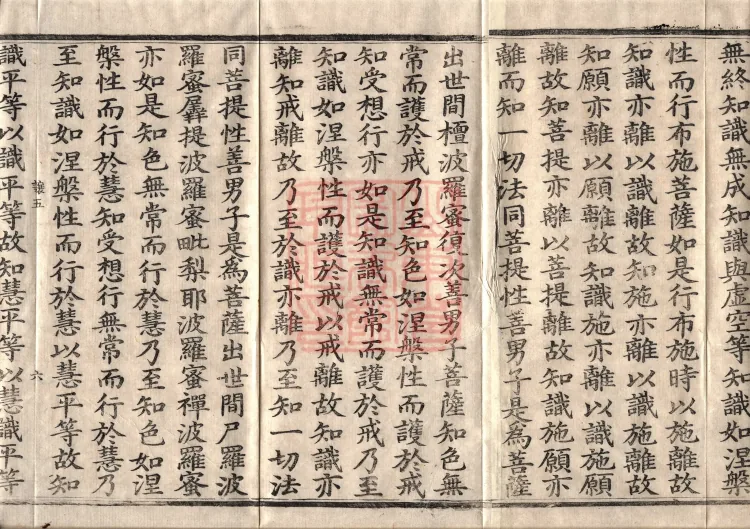 無終知識無成知識與虛空等知識如涅槃
性而行布施菩薩如是行布施時以施離故
知識亦離以識離故知施亦離以識施離故
知願亦離以願離故知識施亦離以識施願
離故知菩提亦離以菩提離故知識施願亦
離而知一切法同菩提性善男子是爲菩薩
出世間檀波羅蜜復次善男子菩薩知色無
常而護於戒乃至知色如涅槃性而護於戒
知受想行亦如是知識無常而護於戒乃至
知識如涅槃性而護於戒以戒離故知識亦
離知戒離故乃至於識亦離乃至知一切法
同菩提性善男子是爲菩薩出世間尸羅波
羅蜜羼提波羅蜜毗梨耶波羅蜜禪波羅蜜
亦如是知色無常而行於慧乃至知色如涅
槃性而行於慧知受想行無常而行於慧乃
至知識如涅槃性而行於慧以慧平等故知
六
識平等以識平等故知慧平等以慧識平等